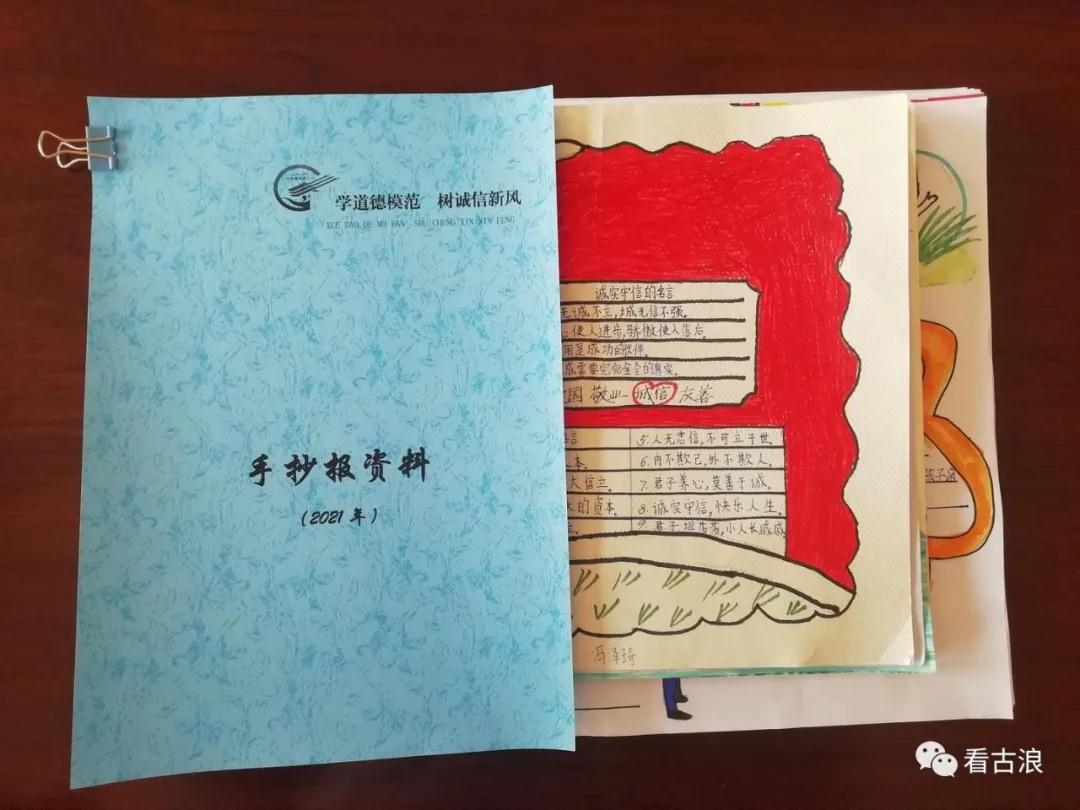 学道德模范 树诚信新风
XUE DAO DE MO FAN SHU CHENG XIN XIN FENG
手抄报资料
(2021年)
诚实守信的名言
无诚不立,城无信不强。
心使人进步,骄傲使人落后。
用是成功的伙伴。
成需要完完全全的真实。
国 敬业 诚信 友善
言
本。
大信立。
大的资本。
5.人无忠信,不可立于世。
6.内不欺己,外不欺人。
7.君子养心,莫善于诚。
8.诚实守信,快乐人生。
9.君子坦荡荡,小人长戚戚
冯泽琦
看古浪